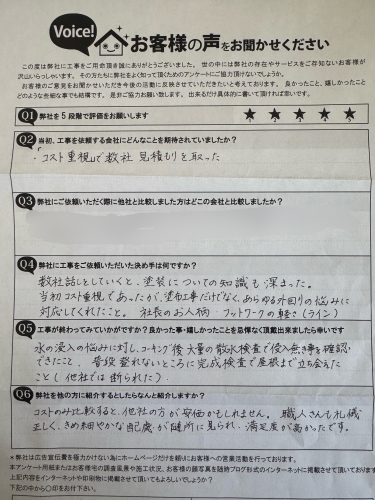 Voice!
お客様の声をお聞かせください
この度は弊社に工事をご用命頂き誠にありがとうございました。世の中には弊社の存在やサービスをご存知ないお客様が
沢山いらっしゃいます。その方たちに弊社をよく知って頂くためのアンケートにご協力頂けないでしょうか。
お客様のご意見をお聞かせいただき今後の活動に反映させていただきたいと考えております。良かったこと、嬉しかったこと
どのような些細な事でも結構です。是非ご協力お願い致します。出来るだけ具体的に書いて頂ければ幸いです。
Q1 弊社を5段階で評価をお願いします ★ ★ ★ ★ ★
Q2 当初、工事を依頼する会社にどんなことを期待されていましたか?
・コスト重視で数社 見積もりを取った
Q3 弊社にご依頼いただく際に他社と比較しました方はどこの会社と比較しましたか?
Q4 弊社に工事をご依頼いただいた決め手は何ですか?
数社話しをしていくと、塗装についての知識も深まった。
当初コスト重視であったが、塗布工事だけでなく、あらゆる外回りの悩みに
対応してくれたこと。社長のお人柄・フットワークの軽さ(ライン)
Q5 工事が終わってみていかがですか?良かった事・嬉しかったことを忌憚なく頂戴出来ましたら幸いです
水の浸入の悩みに対し、コーキング後 大量の散水検査で侵入無き事を確認
できたこと、普段登れないところに完成検査で屋根まで立ち会えた
こと(他社では断られた)。
Q6 弊社を他の方に紹介するとしたらなんと紹介しますか?
コストのみ比較すると、他社の方が安価かもしれません。職人さんも礼儀
正しく、きめ細やかな配慮が随所に見られ、満足度が高かったです。
*弊社は広告宣伝費を極力かけない為にホームページだけを頼りにお客様への営業活動を行っております。
本アンケート用紙またはお客様宅の調査風景や施工状況、お客様の顔写真を随時ブログ形式のインターネットに掲載させて頂いております
上記内容をインターネットや印刷物に掲載させて頂いてもよろしいでしょうか?
下記の中から〇印をお付け下さい。